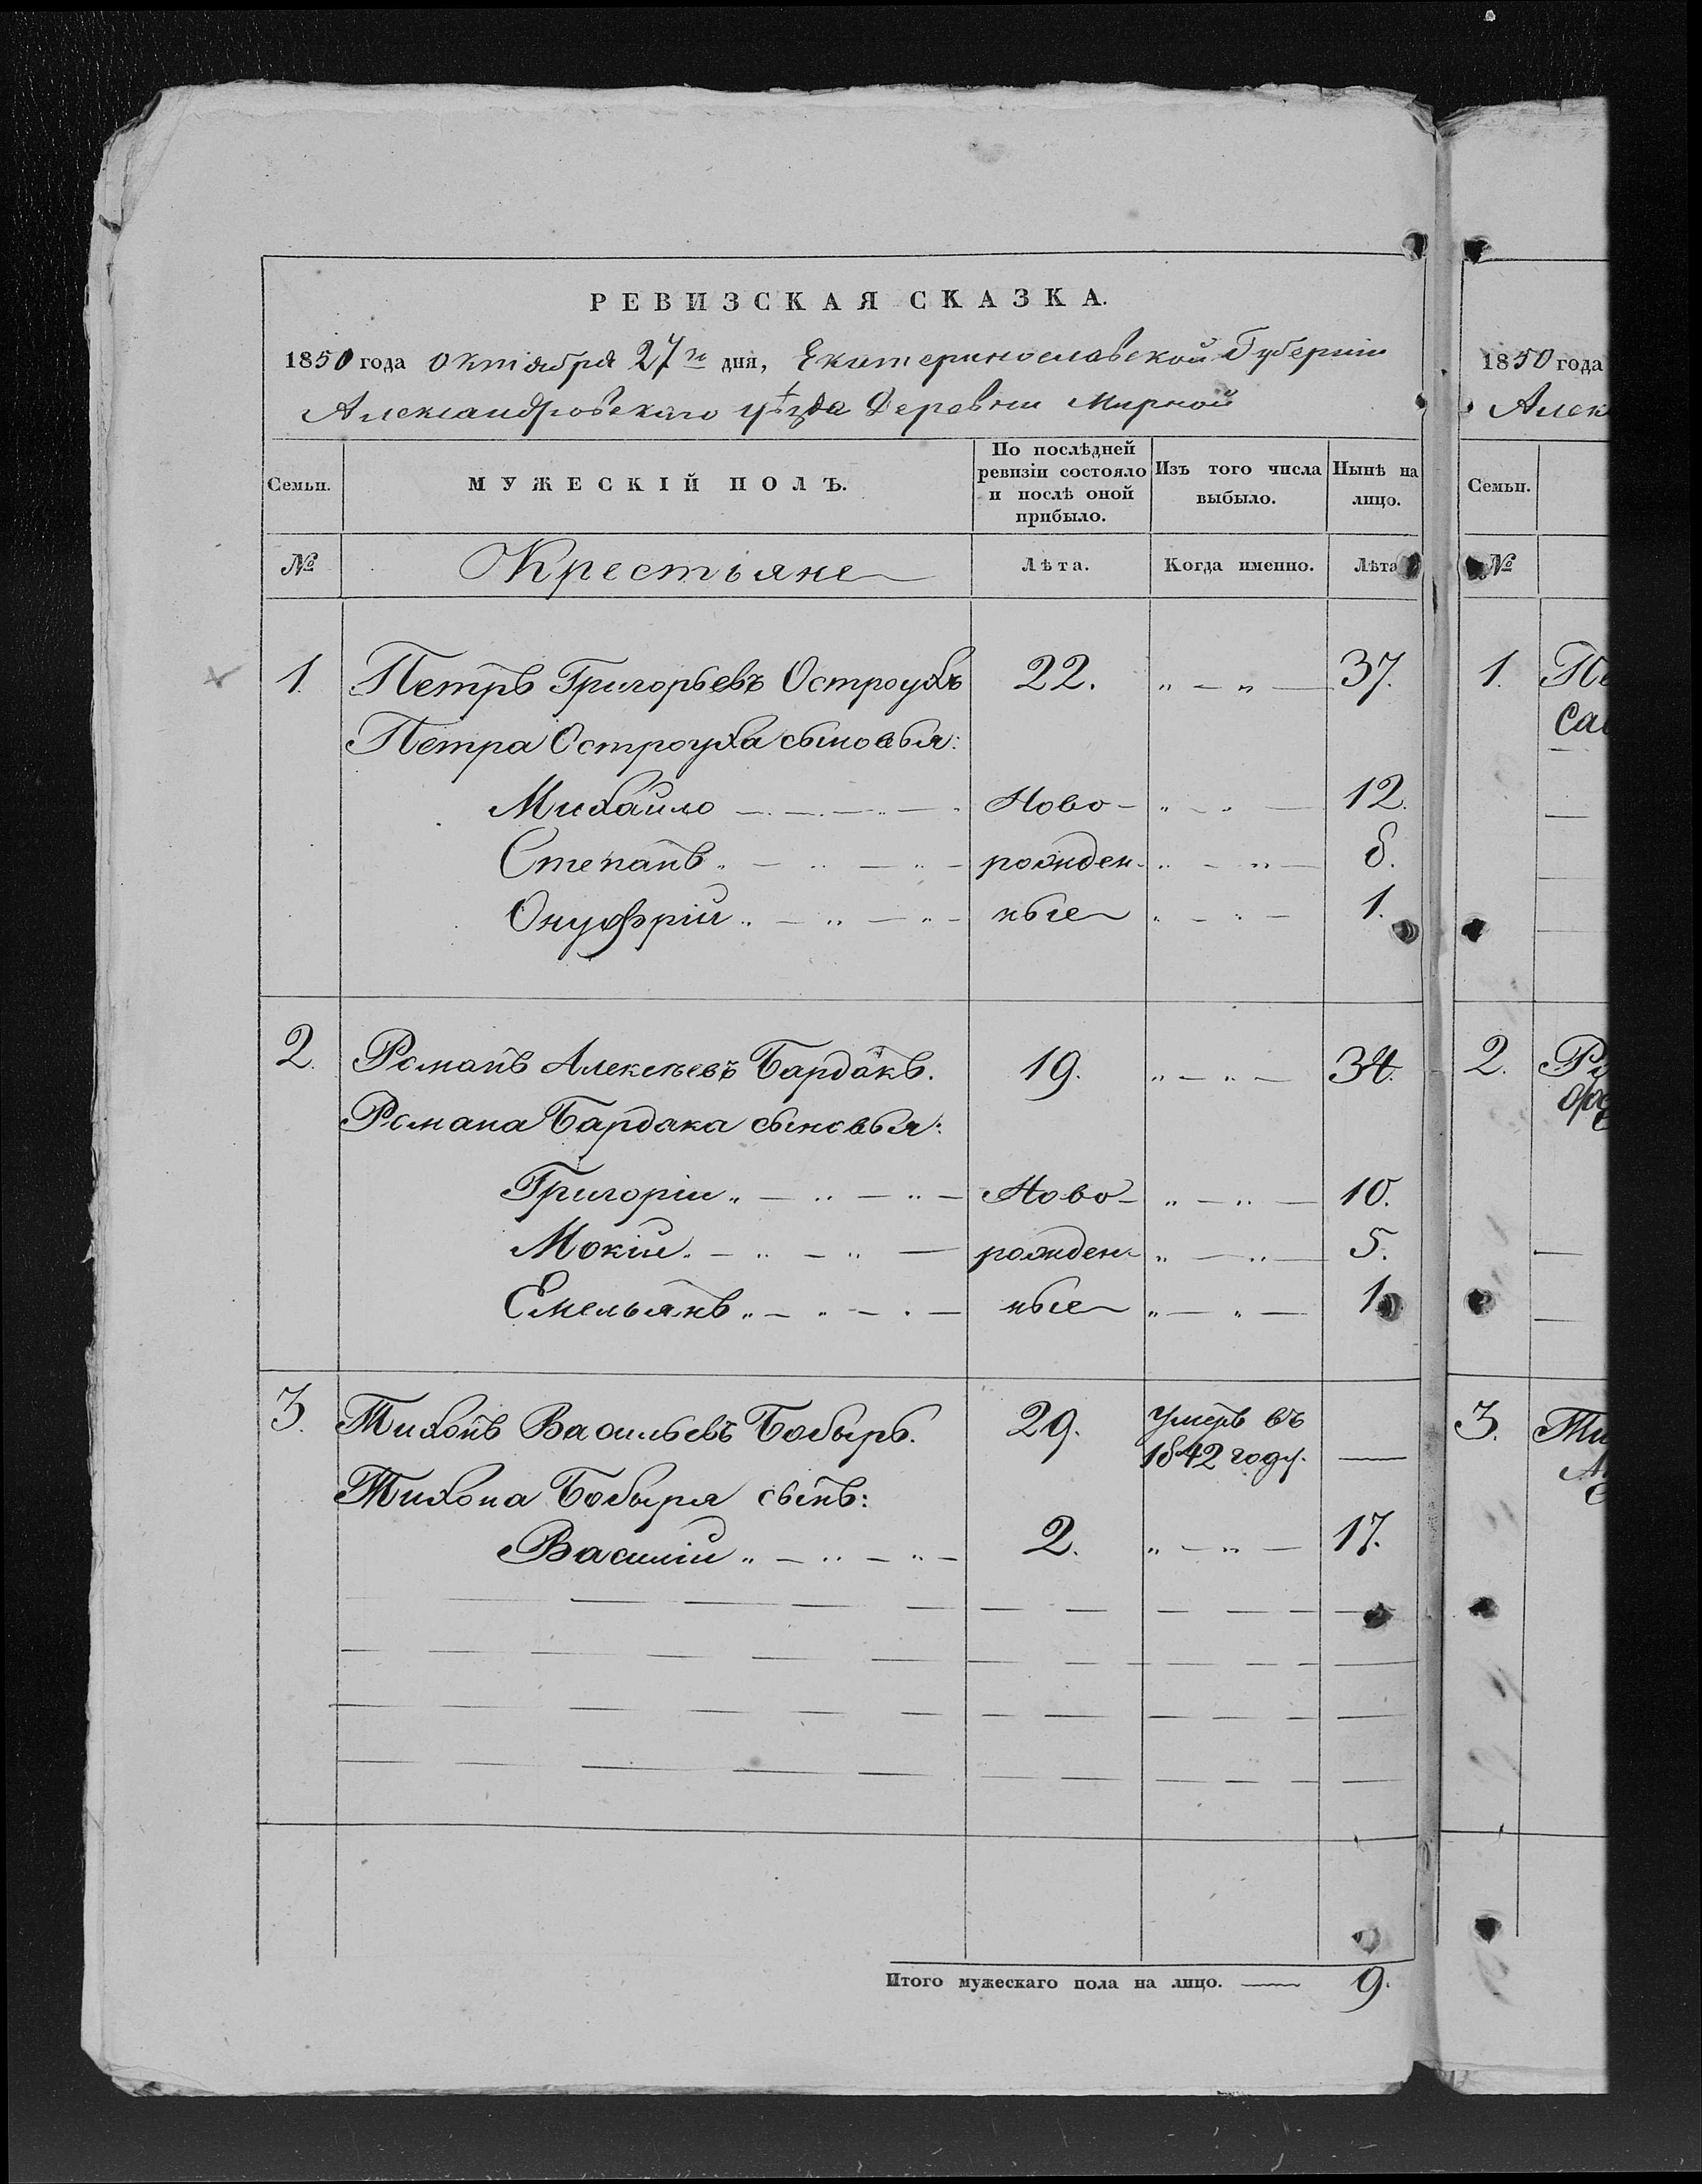 РЕВИЗСКАЯ СКАЗКА.
1850 года октября 27го дня, Екатеринославской Губернiи
Александровскаго уѣзда Деревни Мирной
Семьи.
МУЖЕСКIЙ ПОЛЪ.
По послѣдней ревизiи состояло и послѣ оной прибыло.
Изъ того числа выбыло.
Нынѣ на лицо.
№ Крестьяне Лѣта. Когда именно. Лѣта
1. Петръ Григорьевъ Остроухъ 22. „ — „ — 37.
Петра Остроуха сыновья:
Михайло — — — Ново- „ — „ — 12.
Степанъ „ — „ — „ — рожден- „ — „ — 8.
Онуфрiй „ — „ — „ — ные „ — „ — 1.
2. Романъ Алексѣевъ Бардакъ. 19. „ — „ — 34.
Романа Бардака сыновья:
Григорiй „ — „ — „ — Ново- „ — „ — 10.
Мокiй „ — „ — „ — рожден- „ — „ — 5.
Емельянъ „ — „ — „ — ные „ — „ — 1
3. Тихонъ Васильевъ Бобырь. 29. Умеръ въ
1842 году. —
Тихона Бобыря сынъ:
Василiй „ — „ — „ — 2. „ — „ — 17.
Итого мужескаго пола на лицо. — 9.
1850 года
Алек
Семьи.
№
1. Пе
2. Ро
3. Ти